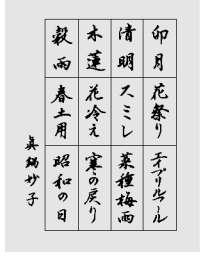 卯月
花祭り
エイプリルフール
清明
スミレ
菜種梅雨
木蓮
花冷え
寒の戻り
穀雨
春土用
昭和の日
眞鍋妙子